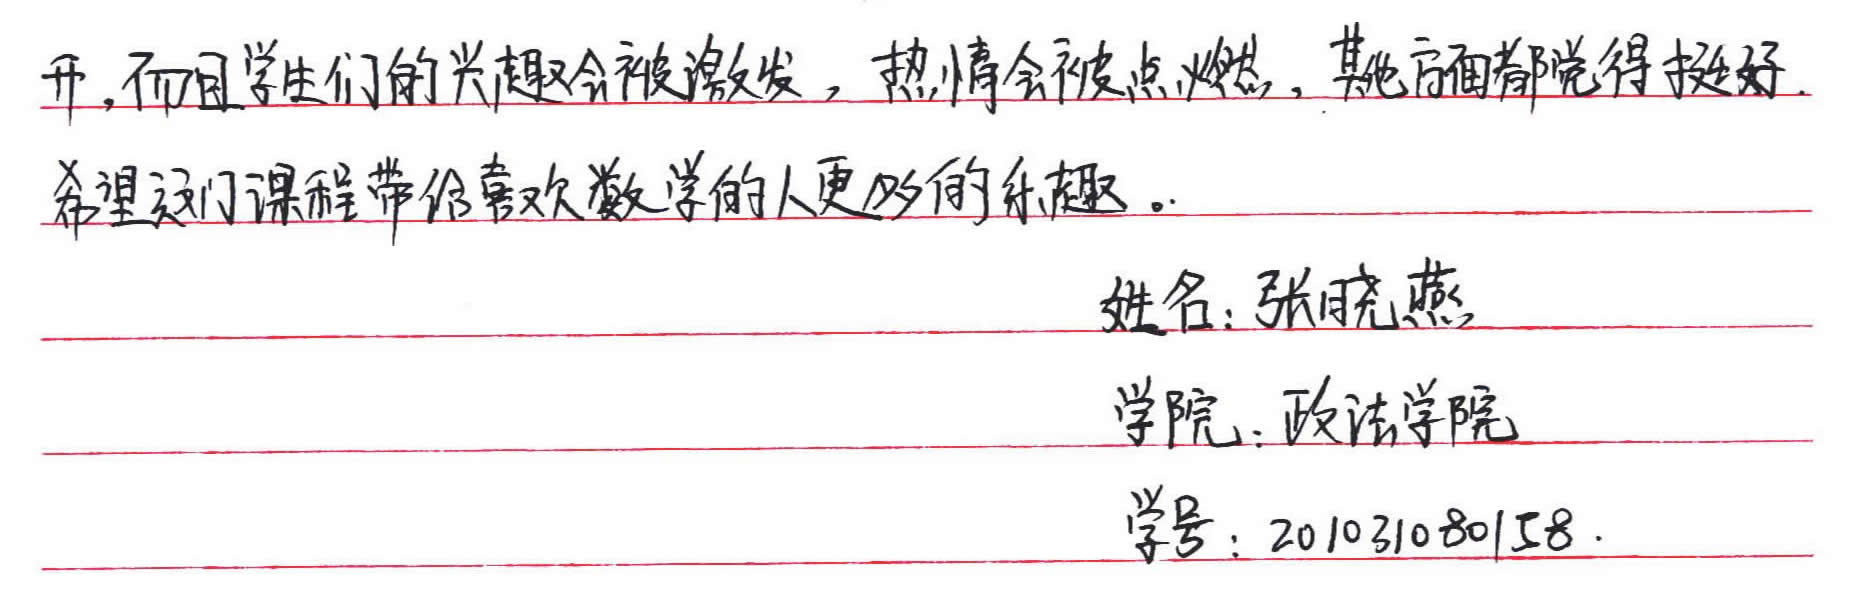 开,而且学生们的兴趣会被激发,热情会被点燃,其他方面都觉得挺好.
希望这门课程带给喜欢数学的人更多的乐趣。
姓名:张晓燕
学院:政法学院
学号:201031080158.